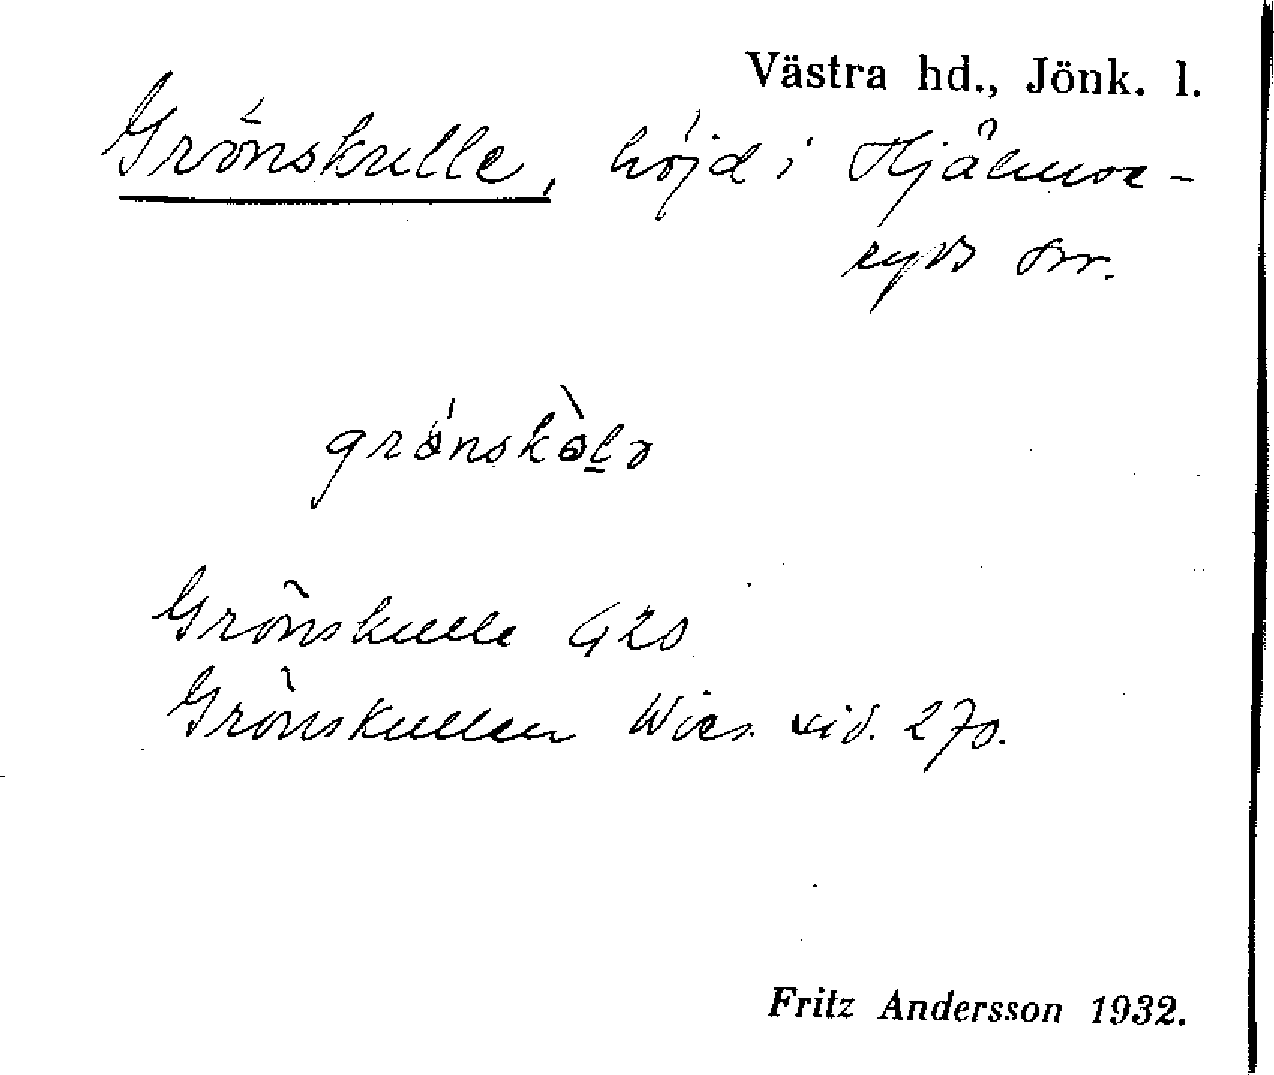 Västra hd., Jönk. l.
Grönskulle, höjd i Hjälmse-
ryds sn.
grönskòlə
Grönskulle G20
Grönskullen Wies. sid. 270.
Fritz Andersson 1932.